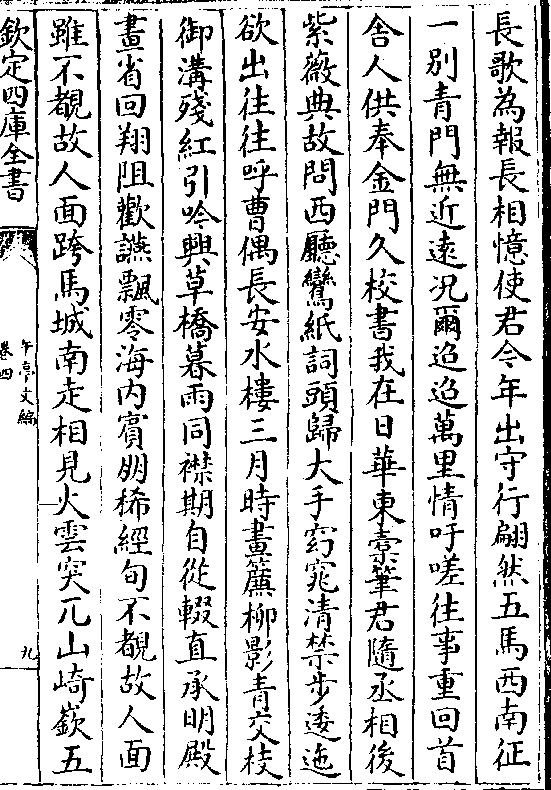 長歌為報長相憶使君今年出守行翩然五馬西南征
一別青門無近遠况爾迢迢萬里情吁嗟往事重回首
舍人供奉金門久校書我在日華東橐筆君隨丞相後
紫薇典故問西廳鸞紙詞頭歸大手窈窕清禁步逶迤
欲出往往呼曹偶長安水樓三月時畫簾柳影青交枝
御溝殘紅引吟興草橋暮雨同襟期自從輟直承明殿
畫省回翔阻歡讌飄零海内賓朋稀經旬不覩故人面
雖不覩故人面跨馬城南走相見火雲突兀山崎嶔五
欽定四庫全書
午亭文編
卷四
九